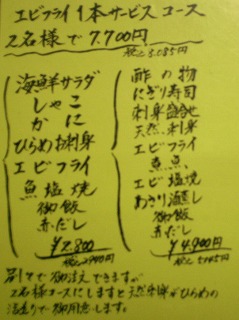 エビフライ1本サービスコース
2名様で7.700円
税込8.085円
海鮮サラダ
しゃこ
かに
ひらめお刺身
エビフライ
魚塩焼
御飯
赤だし
¥2.800
税込2940円
酢の物
にぎり寿司
刺身盛合せ
天然、刺身
エビフライ
エビ塩焼
あさり酒蒸し
御飯
赤だし
¥4.900円
税込5145円
別々で御注文できますが
2名様コースにしますと天然 ひらめの
活造りで御用意します。